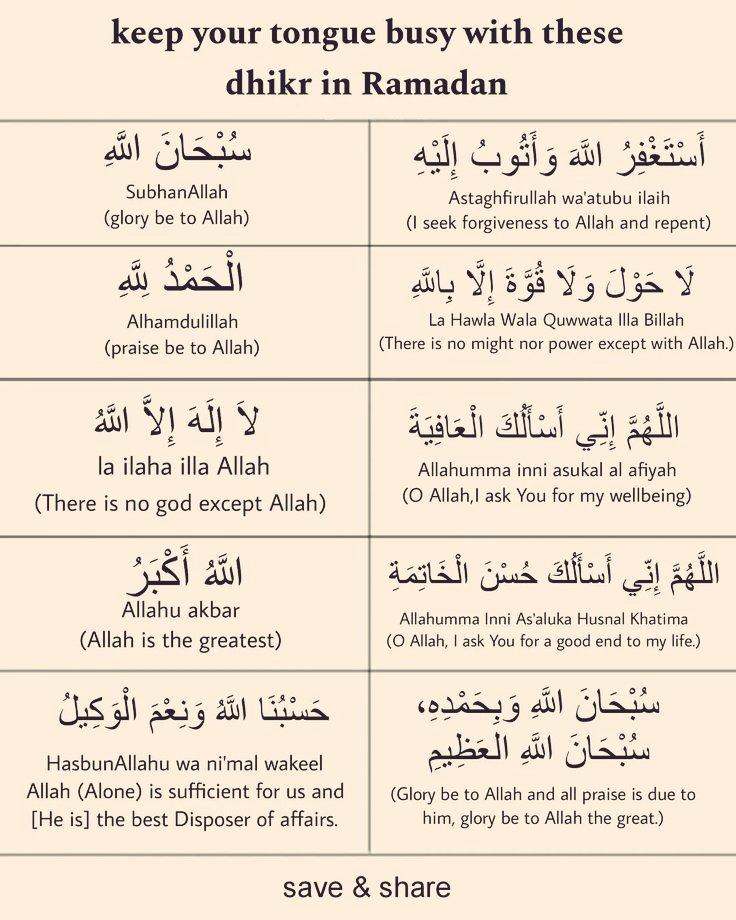 keep your tongue busy with these
dhikr in Ramadan
سُبْحَانَ اللَّهِ
SubhanAllah
(glory be to Allah)
أَسْتَغْفِرُ اللَّهَ وَأَتُوبُ إِلَيْهِ
Astaghfirullah wa'atubu ilaih
(I seek forgiveness to Allah and repent)
الْحَمْدُ لِلَّهِ
Alhamdulillah
(praise be to Allah)
لَا حَوْلَ وَلَا قُوَّةَ إِلَّا بِاللَّهِ
La Hawla Wala Quwwata Illa Billah
(There is no might nor power except with Allah.)
لاَ إِلَهَ إِلاَّ اللَّهُ
la ilaha illa Allah
(There is no god except Allah)
اللَّهُمَّ إِنِّي أَسْأَلُكَ الْعَافِيَةَ
Allahumma inni asukal al afiyah
(O Allah,I ask You for my wellbeing)
اللَّهُ أَكْبَرُ
Allahu akbar
(Allah is the greatest)
اللَّهُمَّ إِنِّي أَسْأَلُكَ حُسْنَ الْخَاتِمَةِ
Allahumma Inni As'aluka Husnal Khatima
(O Allah, I ask You for a good end to my life.)
حَسْبُنَا اللَّهُ وَنِعْمَ الْوَكِيلُ
HasbunAllahu wa ni'mal wakeel
Allah (Alone) is sufficient for us and
[He is] the best Disposer of affairs.
سُبْحَانَ اللَّهِ وَبِحَمْدِهِ،
سُبْحَانَ اللَّهِ العَظِيمِ
(Glory be to Allah and all praise is due to
him, glory be to Allah the great.)
save & share